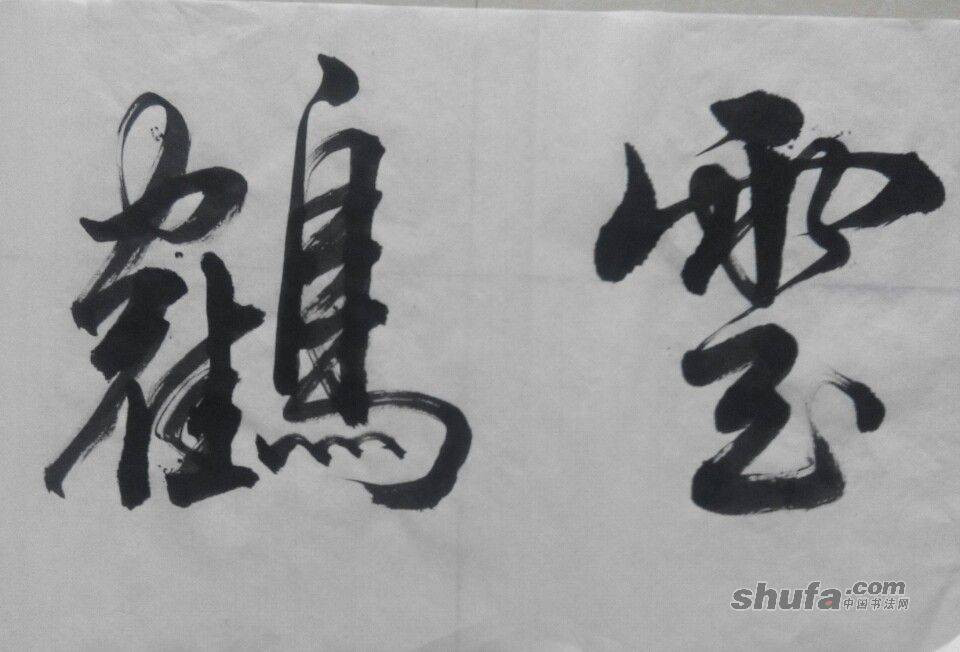 雲鶴
shufa.com
中国书法网